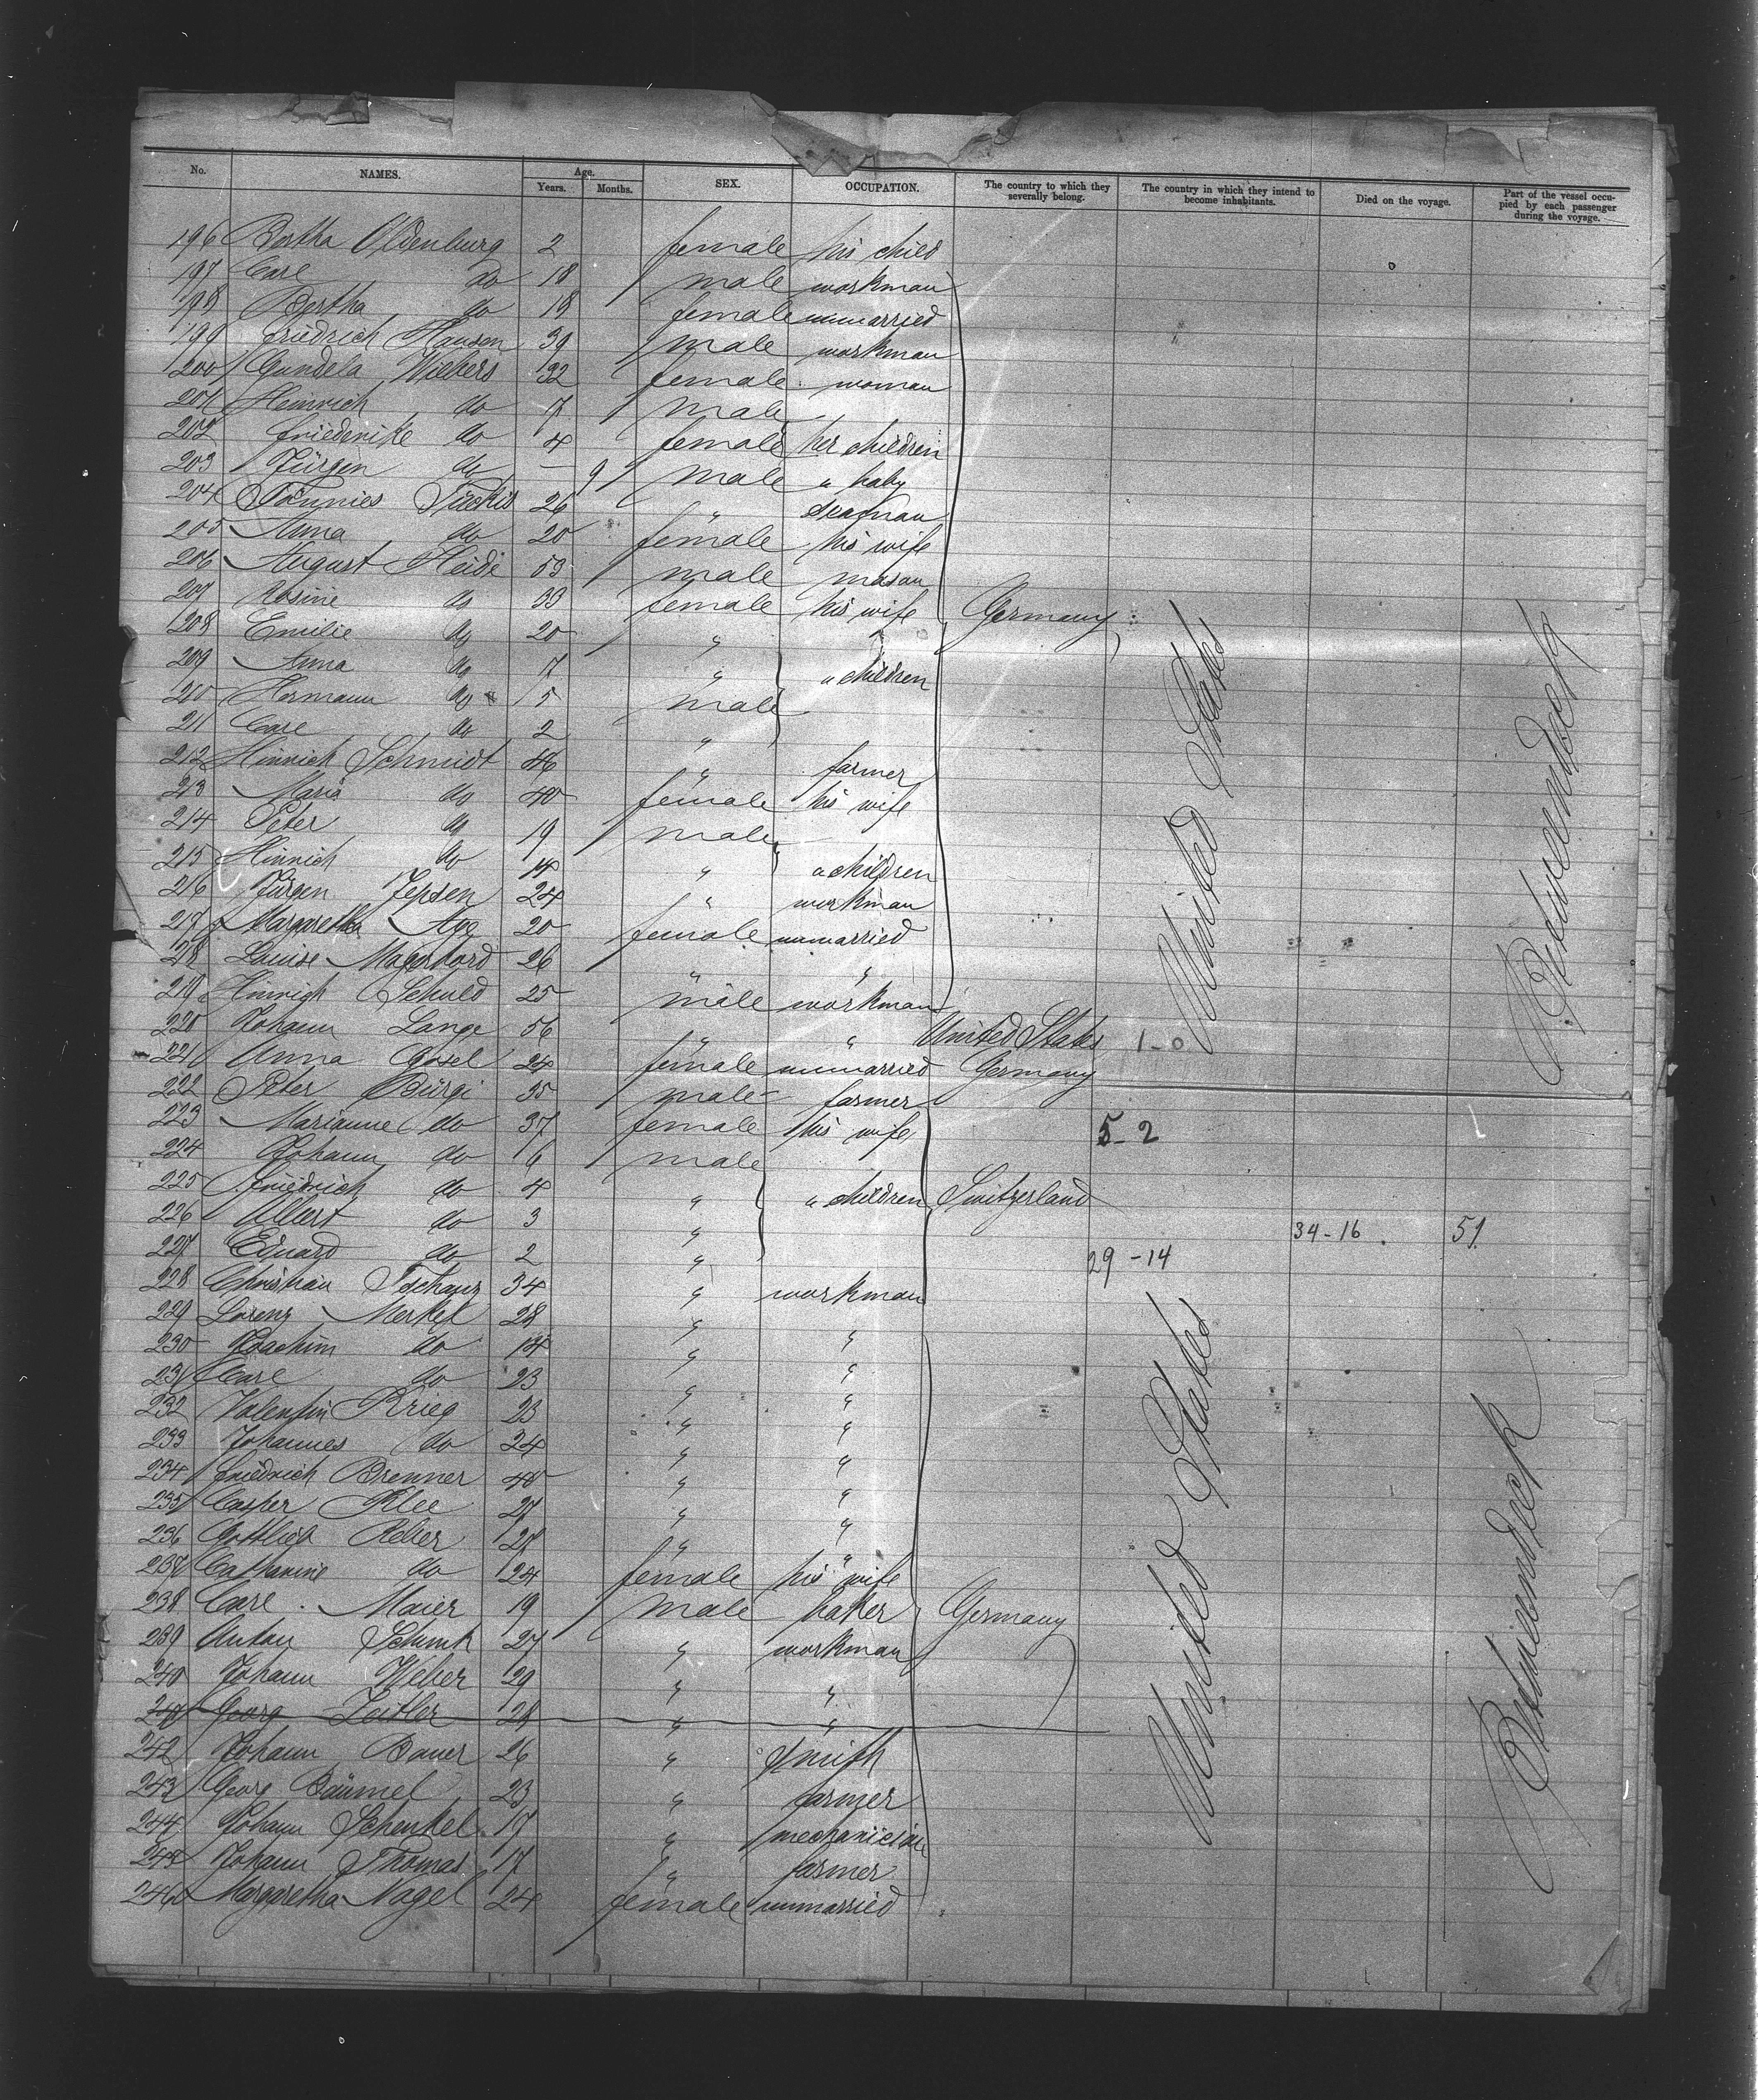 No. NAMES. Age. Years. Months. SEX. OCCUPATION. The country to which they severally belong. The country in which they intend to become inhabitants. Died on the voyage. Part of the vessel occupied by each passenger during the voyage.
196 Bertha Oldenburg 2 female his child
197 Carl do 18 male workman
198 Bertha do 18 female unmarried
199 Friedrich Hansen 39 male workman
200 Gundela Wiekers 32 female woman
201 Heinrich do 7 male
202 Friederike do 4 female her children
203 Jürgen do - 9 male " baby
204 Tönnies 26 " seaman
205 Anna do 20 female his wife
206 August Heide 53 male mason
207 Rosine do 33 female his wife Germany
208 Emilie do 20 "
209 Anna do 7 " " children
210 Hermann do 5 male
211 Carl do 2 "
212 Hinrich Schmidt 46 " farmer
213 Maria do 40 female his wife
214 Peter do 19 male
215 Hinrich do 14 " " children
216 Jürgen Jepsen 24 " workman
217 Margaretha Age 20 female unmarried
218 Louise 26 " "
219 Hinrich Schuld 25 male workman
United States
Between deck
220 Johann Lange 56 " " United States 1-0
221 Anna 24 female unmarried Germany
222 Peter Bürgi 35 male farmer
223 Marianne do 37 female his wife 5-2
224 Johann do 6 male
225 Friedrich do 4 " " children Switzerland
226 Albert do 3 " 34-16. 51.
227 Eduard do 2 " 29-14
228 Christian Tschanz 34 " workman
229 Lorenz Merkel 28 " "
230 Joachim do 14 " "
231 Carl do 23 " "
232 Valentin Krieg 23 " "
233 Johannes do 24 " "
234 Friedrich Brenner 48 " "
235 Casper Klee 27 " "
236 Gottlieb 28 " "
237 Catharine do 24 female his wife
238 Carl Maier 19 male baker Germany
239 Anton Schunk 27 " workman
240 Johann Weber 29 " "
Georg Zeitler 28 " "
242 Johann Bauer 26 " smith
243 Georg Bäumel 23 " farmer
244 Johann Schenkel 17 " mechanician
245 Johann Thomas 17 " farmer
246 Margaretha Nagel 24 female unmarried
United States
Between deck